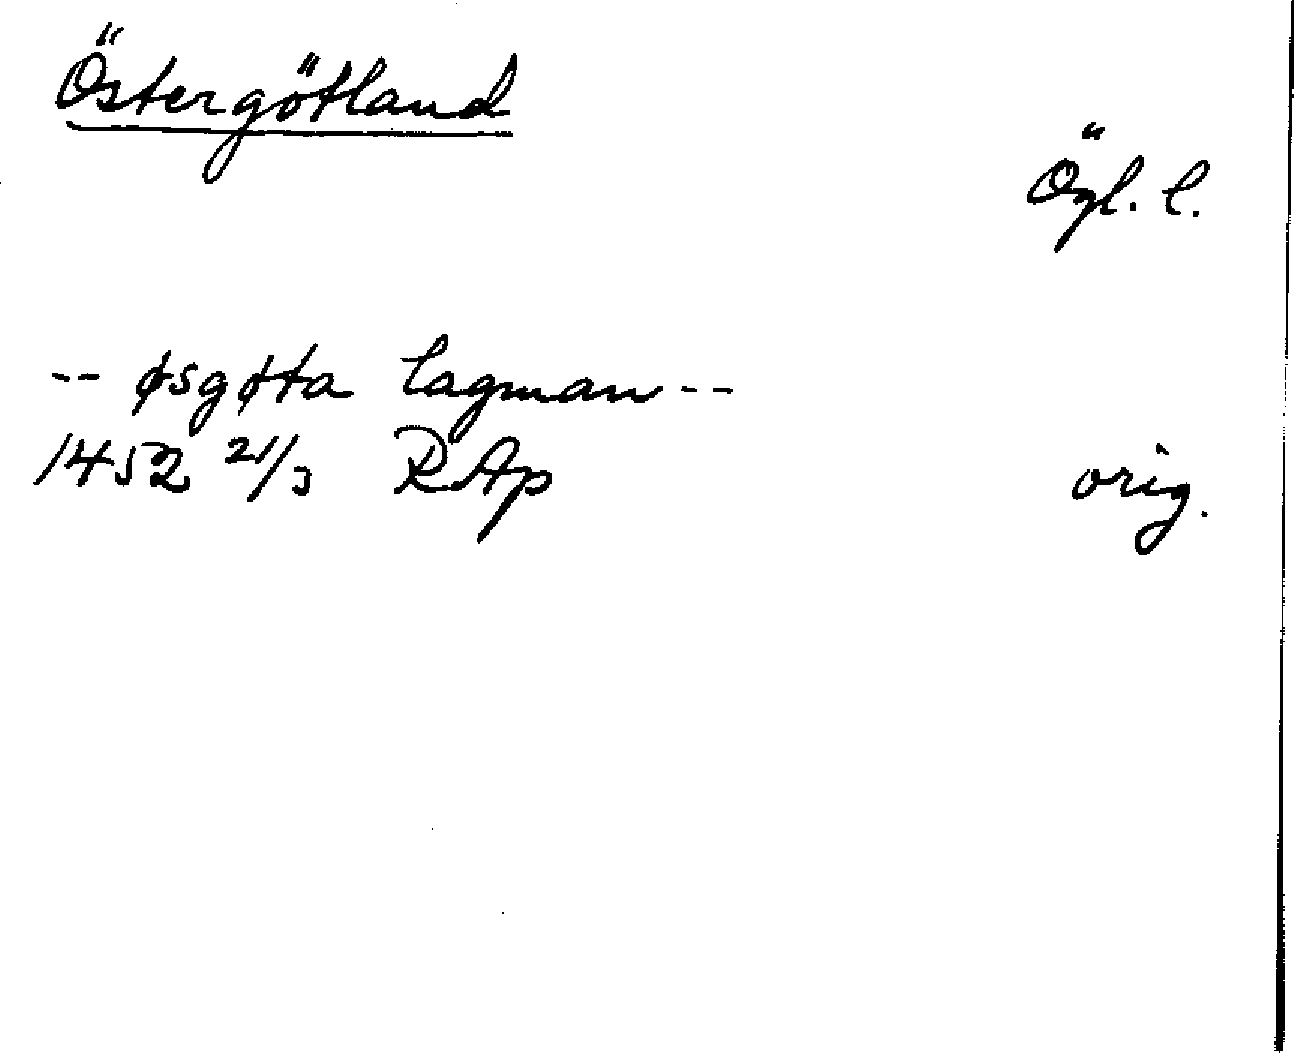 Östergötland
Ögl. l.
-- øsgøtta lagman --
1452 21/3 RAp orig.